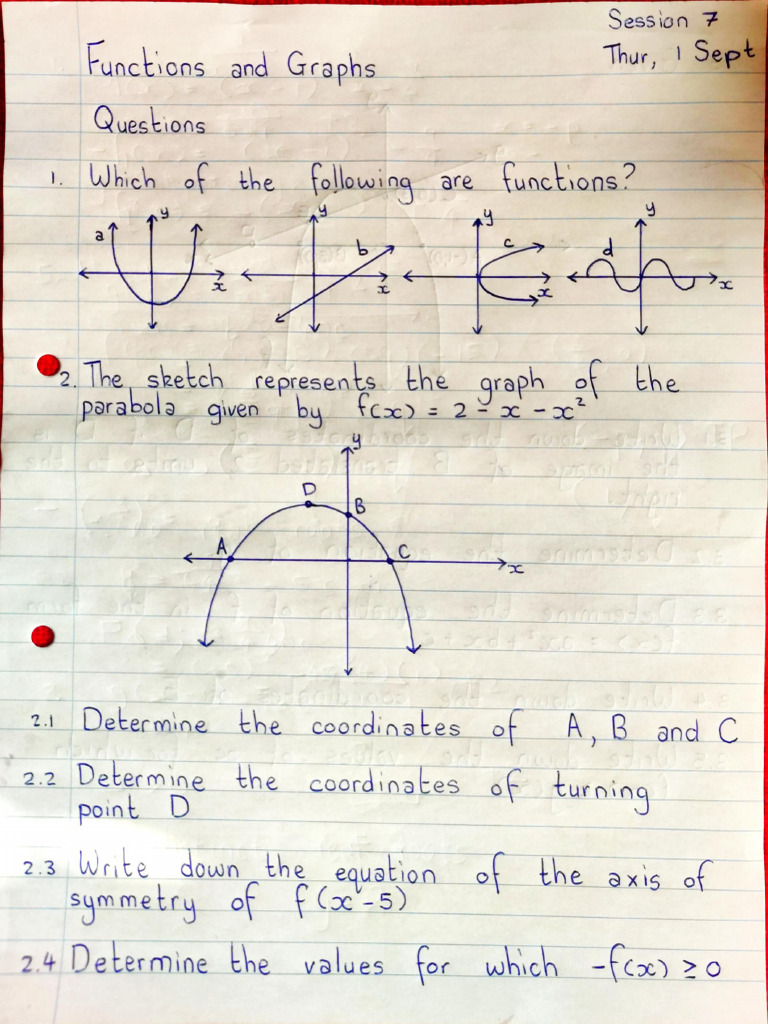 Session 7
Thur, 1 Sept
Functions and Graphs
Questions
1. Which of the following are functions?
a y x b y x c y x d y x
2. The sketch represents the graph of the
parabola given by f(x) = 2 - x - x²
y
D
B
A
C
x
2.1 Determine the coordinates of A, B and C
2.2 Determine the coordinates of turning
point D
2.3 Write down the equation of the axis of
symmetry of f(x-5)
2.4 Determine the values for which -f(x) ≥ 0